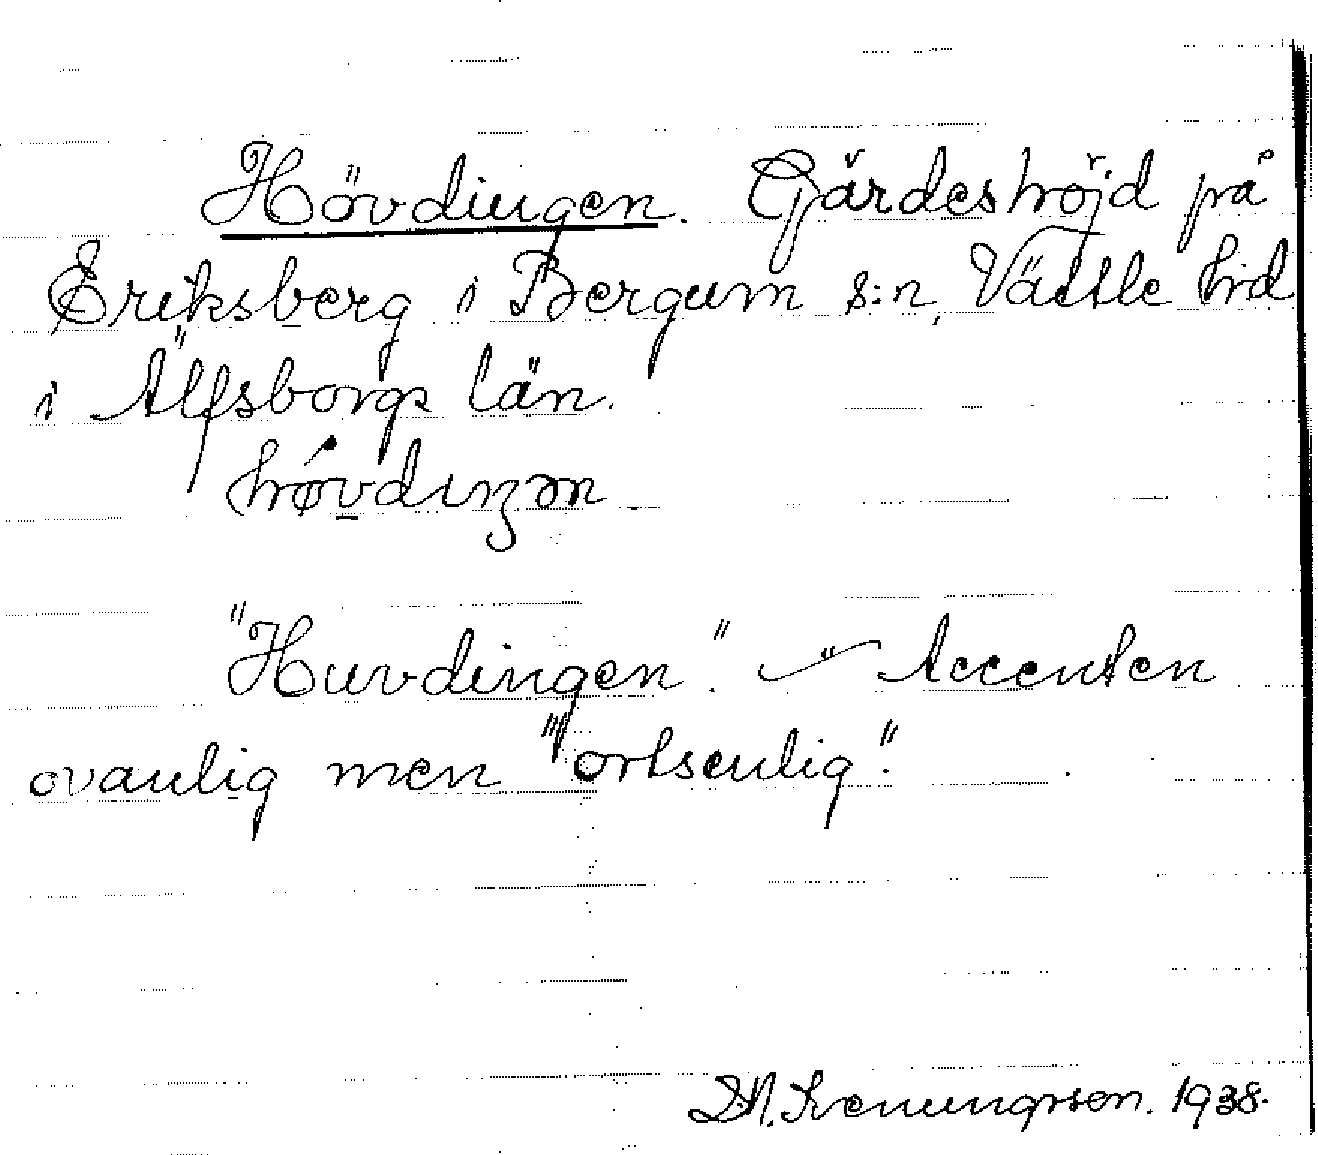 Hövdingen. Gärdeshöjd på
Eriksberg i Bergum s:n, Vättle hd
i Älfsborgs län.
hǿvdıŋən
"Huvdingen". Accenten
ovanlig men "ortsenlig".
D.A. Svenungsson. 1938.